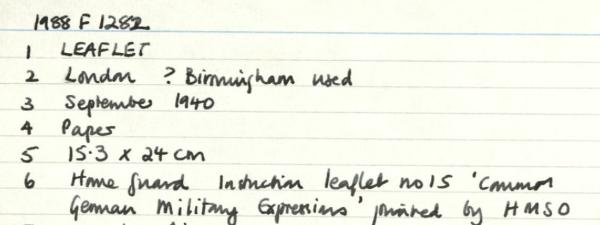 1988 F 1282
1 LEAFLET
2 London ? Birmingham used
3 September 1940
4 Paper
5 15.3 x 24 cm
6 Home Guard Instruction leaflet no 15 'Common
German Military Expressions' printed by HMSO